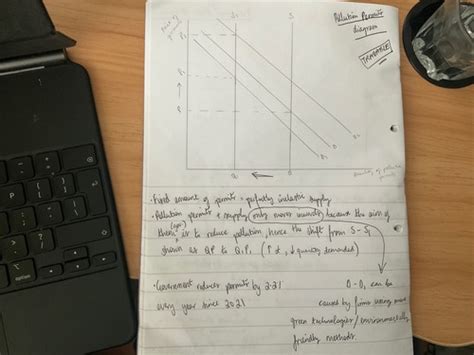 Pollution Permits
diagram
TRADABLE
Price of
permits
S₁
S
P₂
P₁
P
D₁
D
D₂
Q₁
Q
Quantity of pollution
permits
• Fixed amount of permits = perfectly inelastic supply
• Pollution permits supply (only moves inwards) because the aim of
these is to reduce pollution, hence the shift from S - S₁
shown as QP to Q₁P₁ (↑ P, ↓ quantity demanded)
• Government reduces permits by 2.2%
every year since 2021
D - D₁ can be
caused by firms using more
green technologies / environmentally
friendly methods.